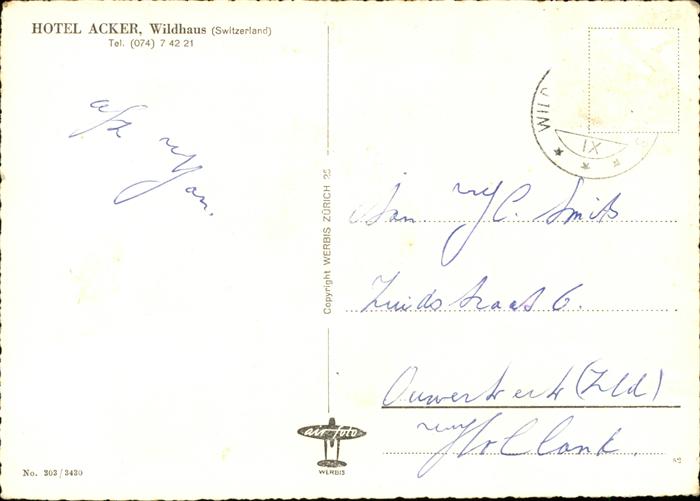 HOTEL ACKER, Wildhaus (Switzerland)
Tel. (074) 7 42 21
WILD
IX
Copyright WERBIS ZÜRICH 25
C. Smits
Zuidstraat 6.
Ouwerkerk (Zld)
Holland.
air-foto
WERBIS
No. 303/3430